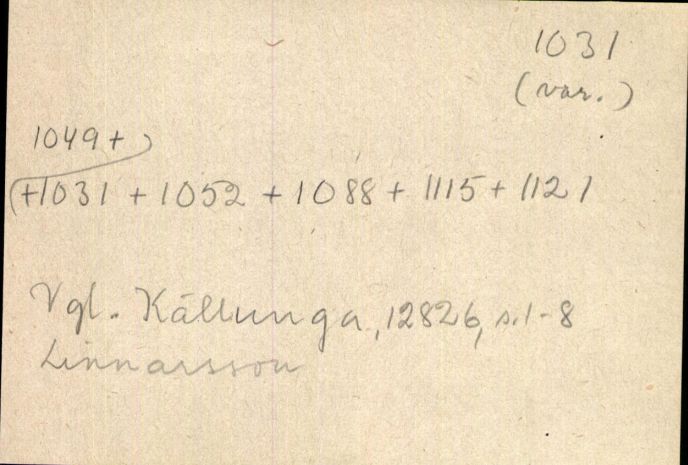 1031
(var.)
1049+
(+1031 + 1052 + 1088 + 1115 + 1121
Vgl. Källunga, 12826, s. 1-8
Linnarsson